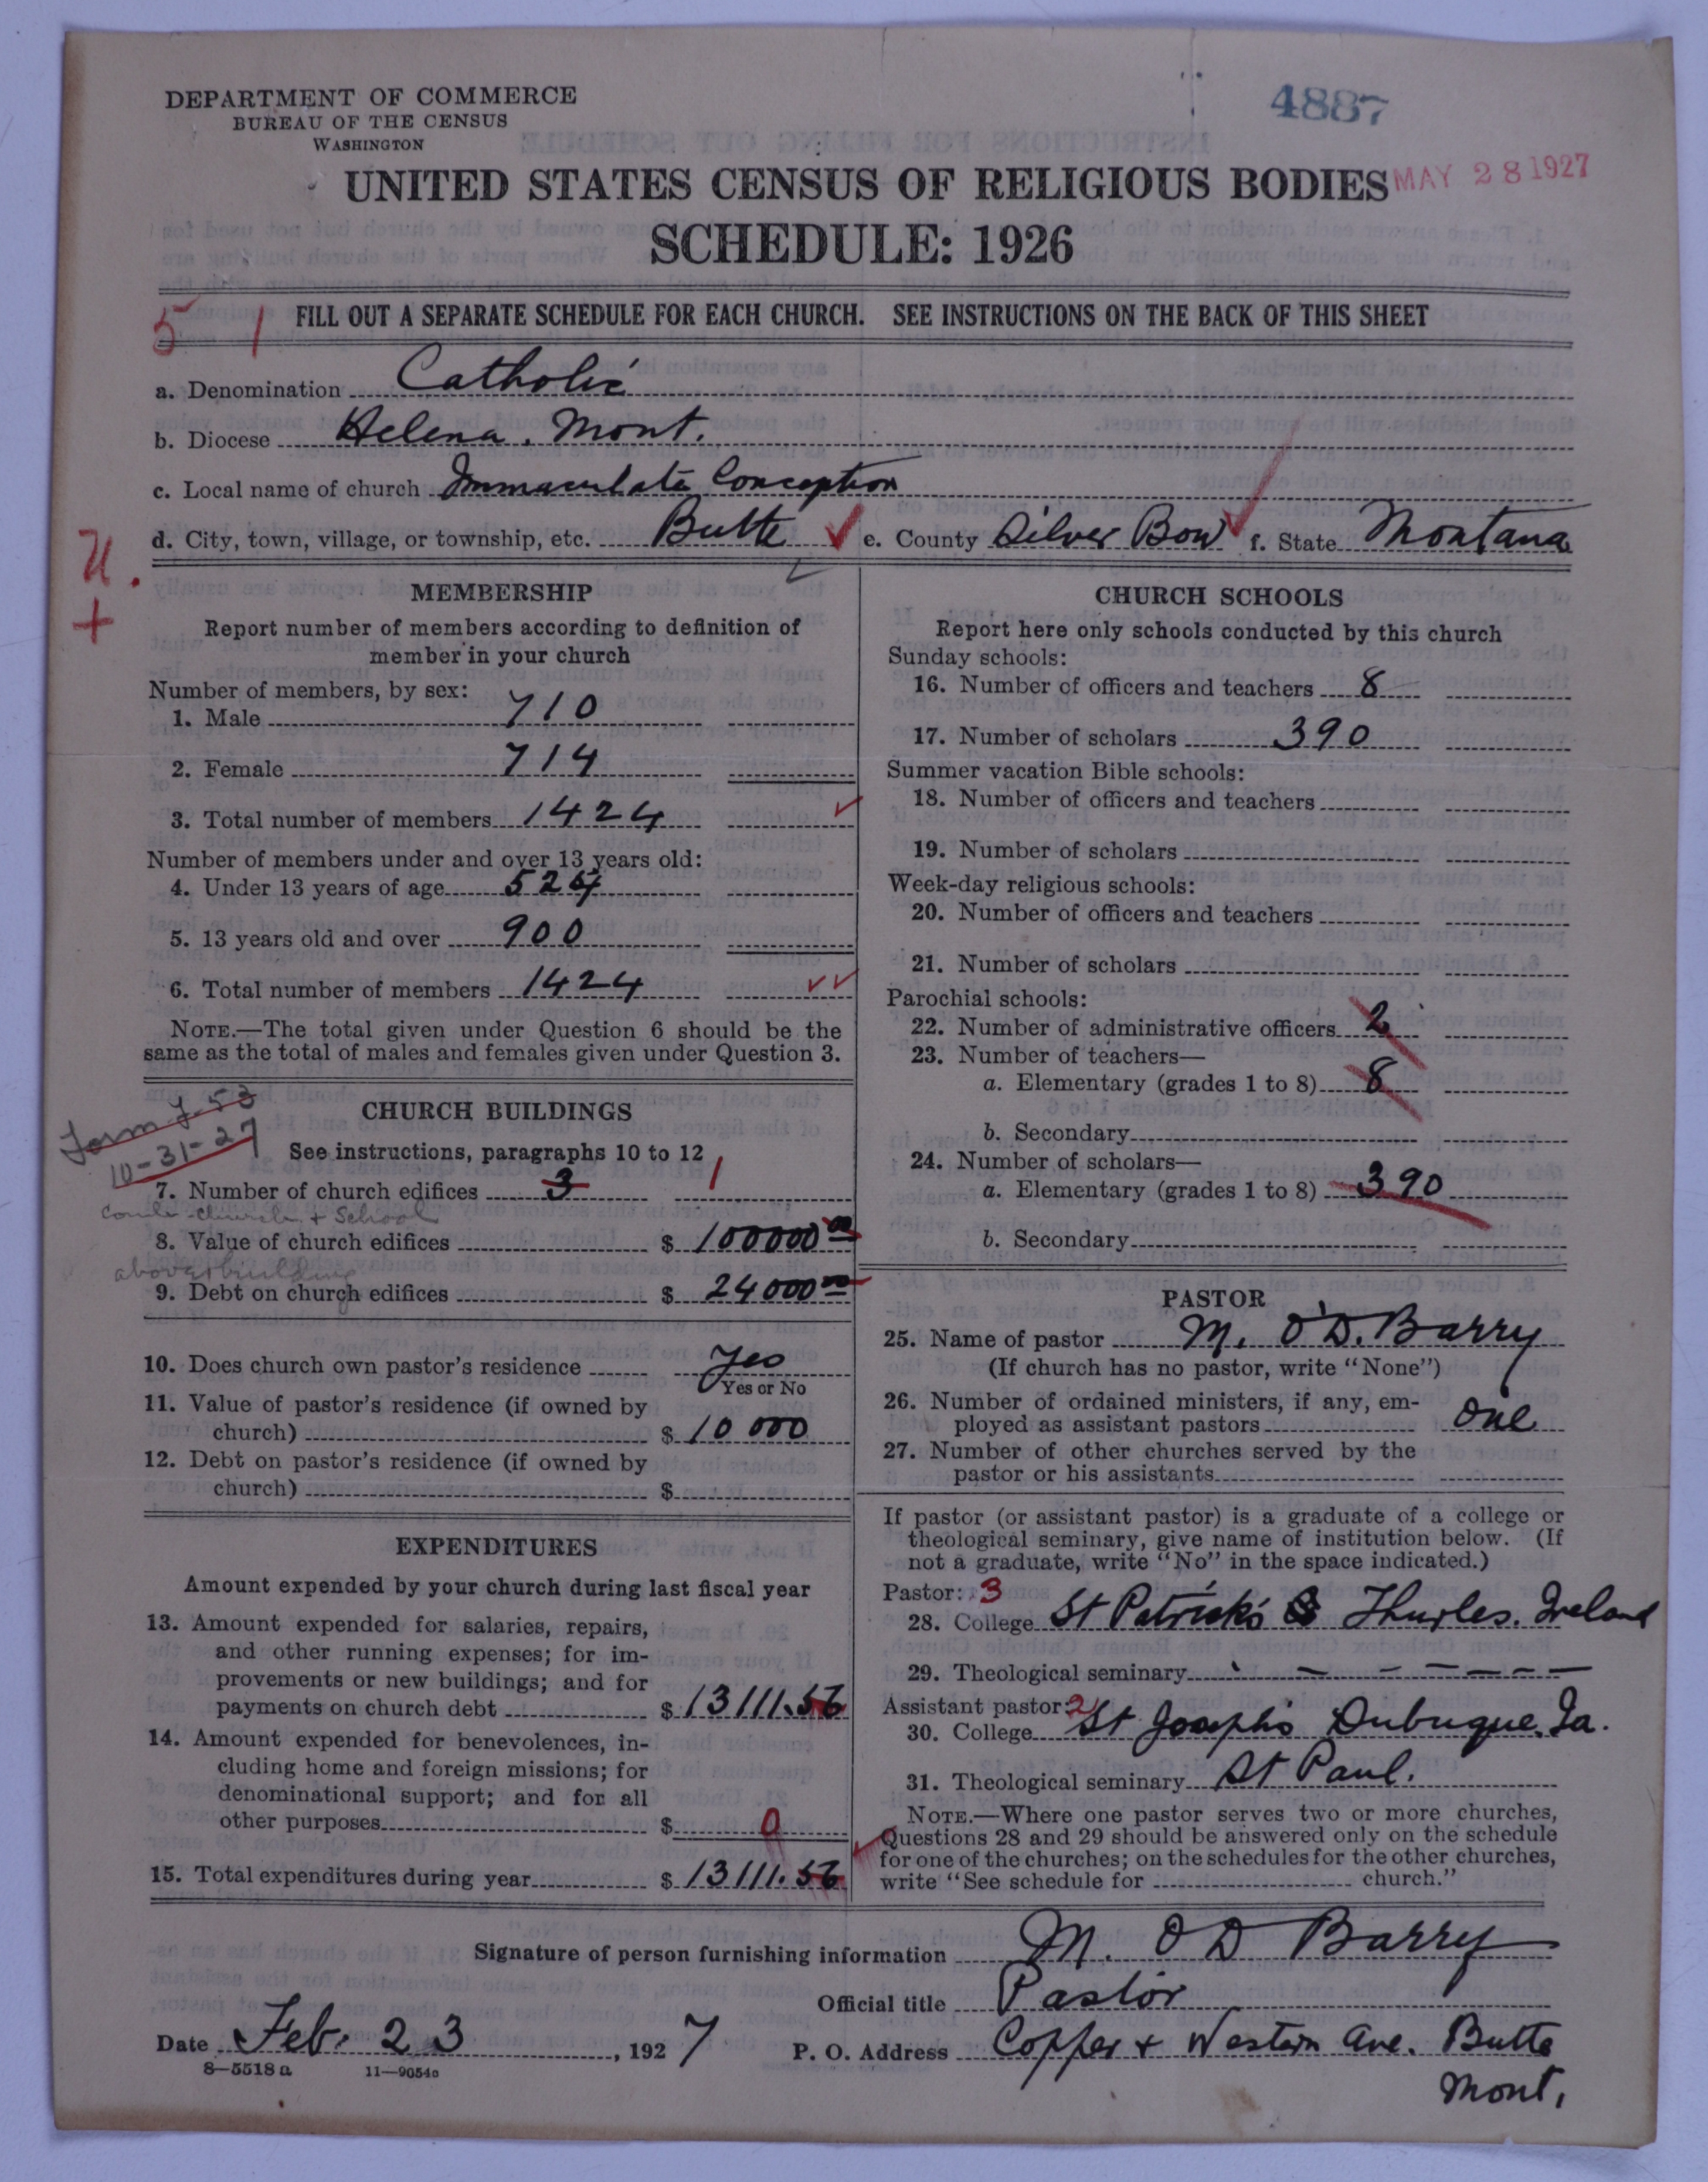 DEPARTMENT OF COMMERCE
BUREAU OF THE CENSUS
WASHINGTON
4887
UNITED STATES CENSUS OF RELIGIOUS BODIES
MAY 28 1927
SCHEDULE: 1926
5 1
FILL OUT A SEPARATE SCHEDULE FOR EACH CHURCH. SEE INSTRUCTIONS ON THE BACK OF THIS SHEET
a. Denomination Catholic
b. Diocese Helena. Mont.
c. Local name of church Immaculate Conception
d. City, town, village, or township, etc. Butte e. County Silver Bow f. State Montana
U.
+
MEMBERSHIP
Report number of members according to definition of
member in your church
Number of members, by sex:
1. Male 710
2. Female 714
3. Total number of members 1424
Number of members under and over 13 years old:
4. Under 13 years of age 524
5. 13 years old and over 900
6. Total number of members 1424
NOTE.—The total given under Question 6 should be the
same as the total of males and females given under Question 3.
Form J-53
10-31-27
CHURCH BUILDINGS
See instructions, paragraphs 10 to 12
7. Number of church edifices 3 1
church + School
8. Value of church edifices $ 100000 00
above building
9. Debt on church edifices $ 24000 00
10. Does church own pastor's residence Yes
Yes or No
11. Value of pastor's residence (if owned by
church) $ 10 000
12. Debt on pastor's residence (if owned by
church) $
EXPENDITURES
Amount expended by your church during last fiscal year
13. Amount expended for salaries, repairs,
and other running expenses; for im-
provements or new buildings; and for
payments on church debt $ 13111.56
14. Amount expended for benevolences, in-
cluding home and foreign missions; for
denominational support; and for all
other purposes $ 0
15. Total expenditures during year $ 13111.56
CHURCH SCHOOLS
Report here only schools conducted by this church
Sunday schools:
16. Number of officers and teachers 8
17. Number of scholars 390
Summer vacation Bible schools:
18. Number of officers and teachers
19. Number of scholars
Week-day religious schools:
20. Number of officers and teachers
21. Number of scholars
Parochial schools:
22. Number of administrative officers 2
23. Number of teachers—
a. Elementary (grades 1 to 8) 8
b. Secondary
24. Number of scholars—
a. Elementary (grades 1 to 8) 390
b. Secondary
PASTOR
25. Name of pastor M. O'D. Barry
(If church has no pastor, write "None")
26. Number of ordained ministers, if any, em-
ployed as assistant pastors one
27. Number of other churches served by the
pastor or his assistants
If pastor (or assistant pastor) is a graduate of a college or
theological seminary, give name of institution below. (If
not a graduate, write "No" in the space indicated.)
Pastor: 3
28. College St Patrick's Thurles. Ireland
29. Theological seminary
Assistant pastor: 2
30. College St Joseph's Dubuque, Ia.
31. Theological seminary St Paul.
NOTE.—Where one pastor serves two or more churches,
Questions 28 and 29 should be answered only on the schedule
for one of the churches; on the schedules for the other churches,
write "See schedule for church."
Signature of person furnishing information M. O'D Barry
Official title Pastor
Date Feb. 23, 1927 P. O. Address Copper + Western Ave. Butte
Mont.
8—5518 a 11—9054c